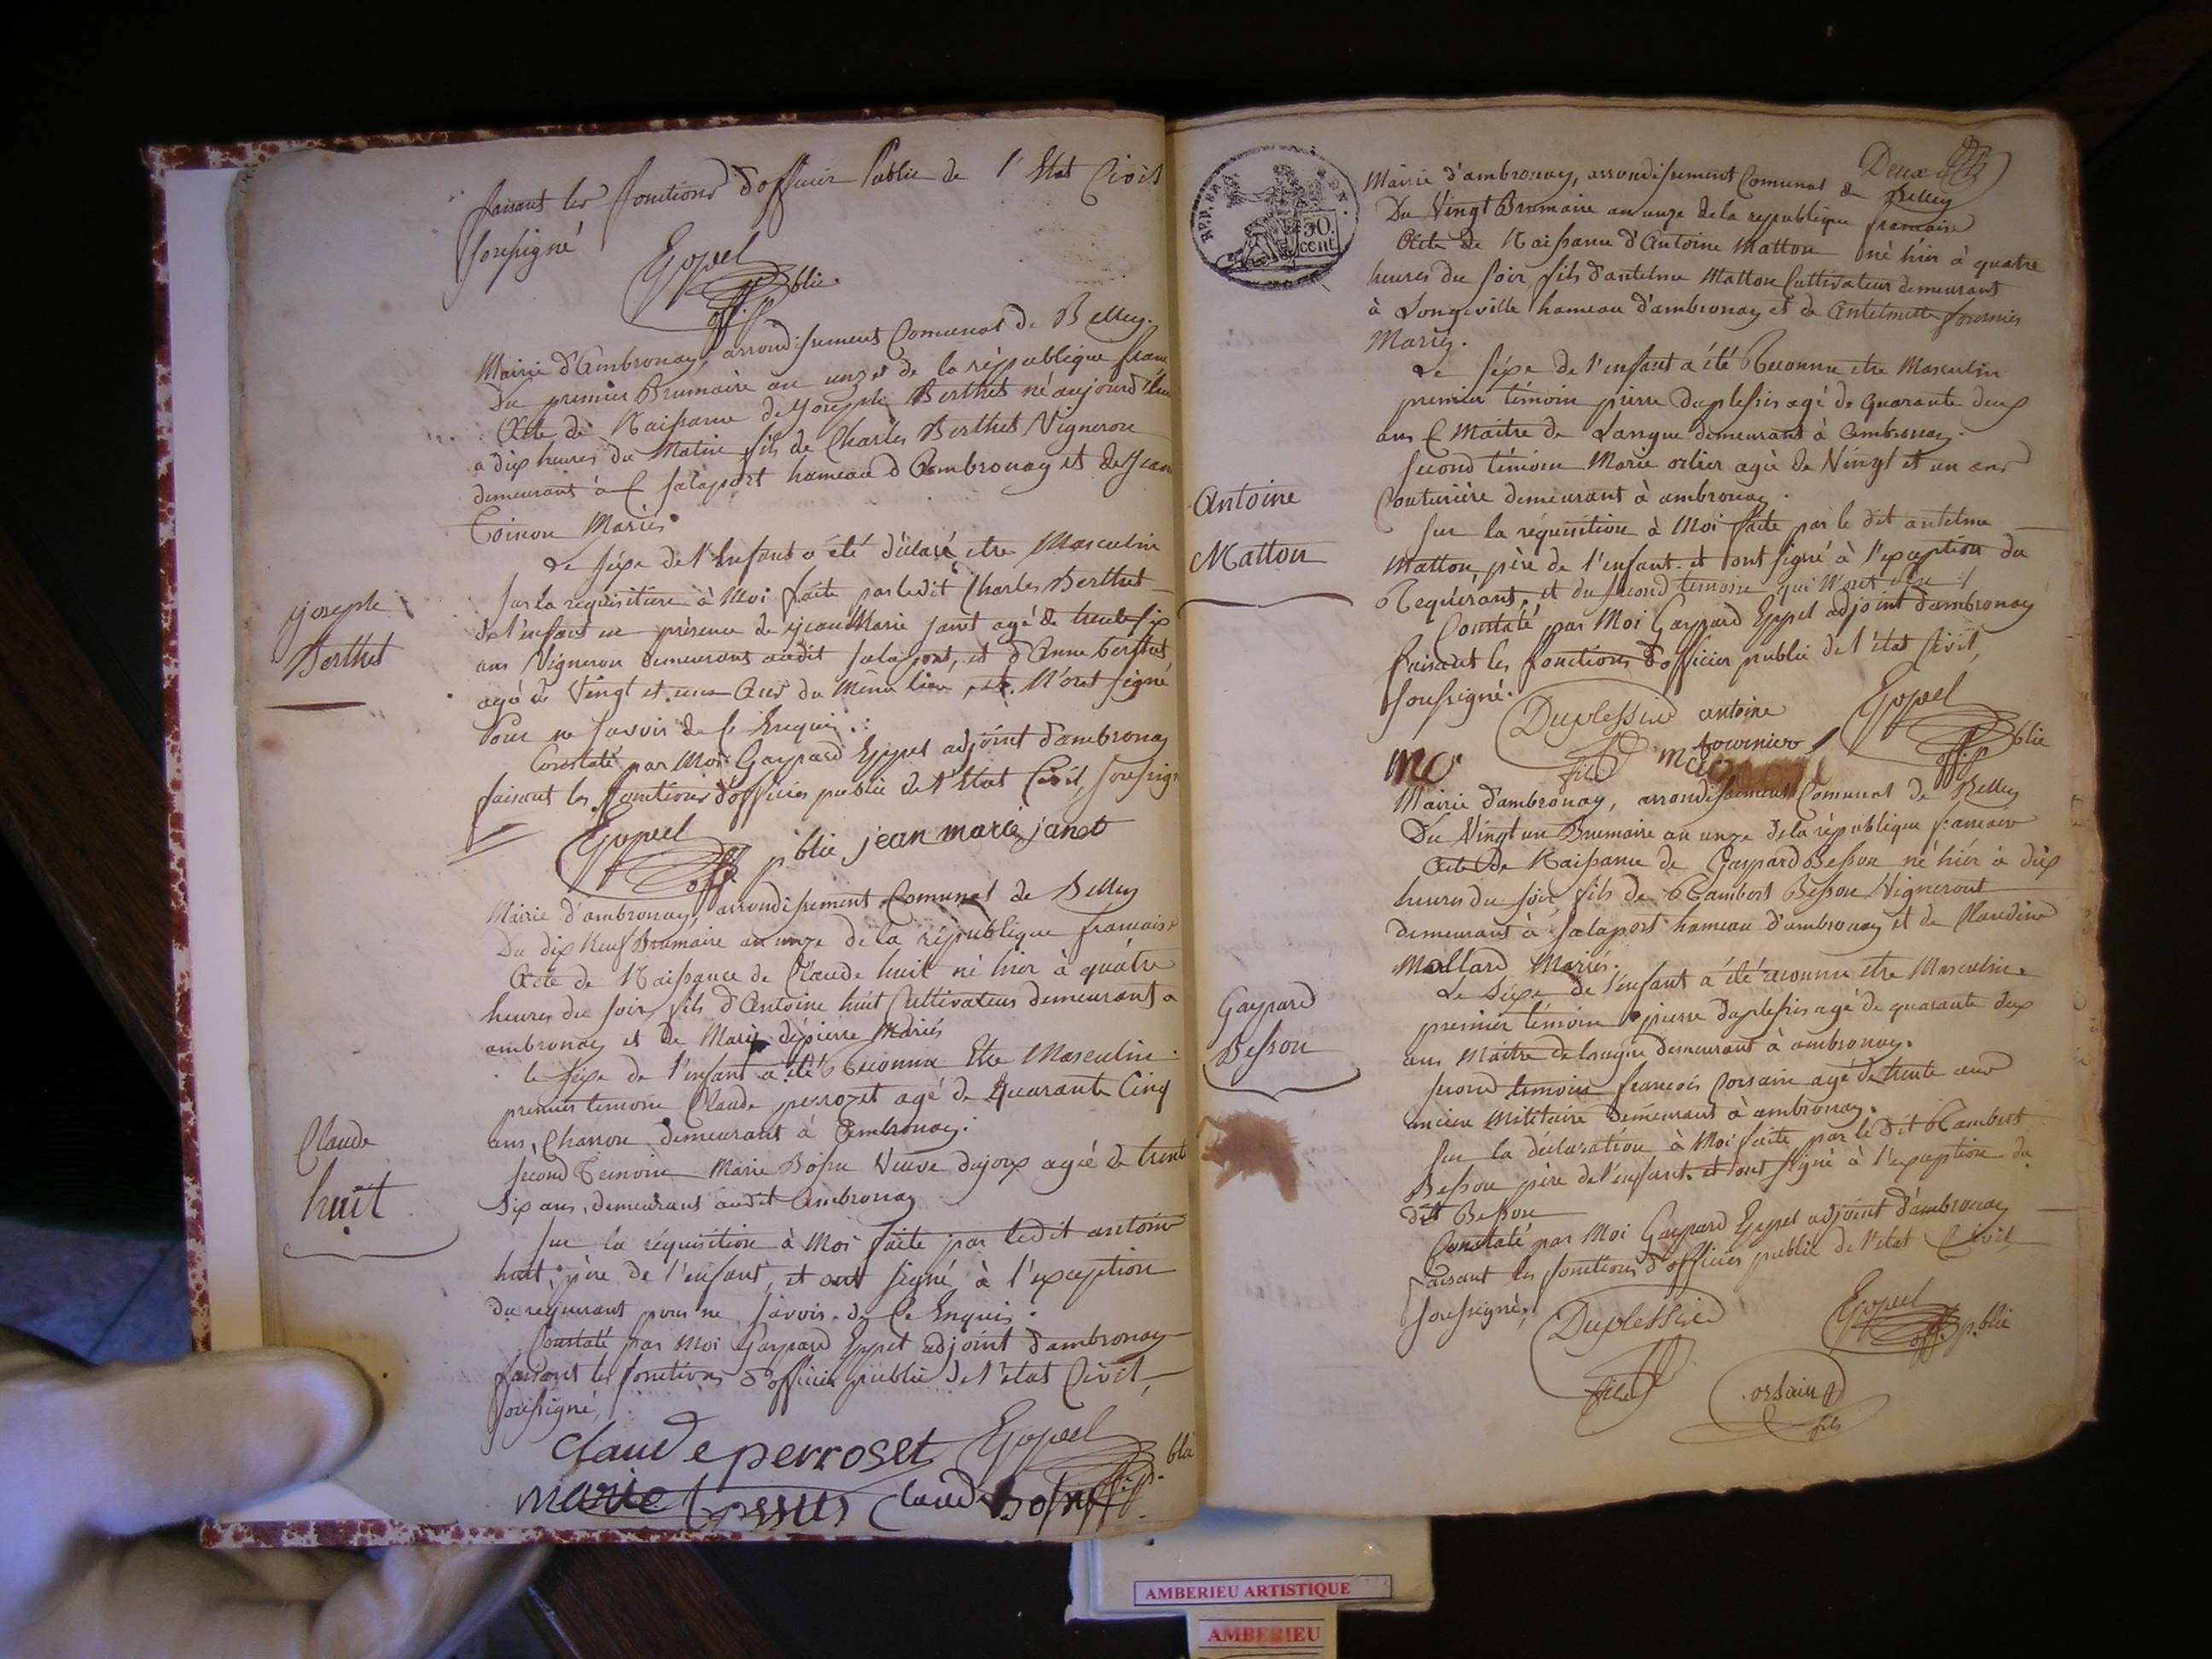 faisant les fonctions d'officier Public de l'Etat Civil
soussigné
Eppel
off. p. blic
Mairie d'Ambronay, arrondissement Comunal de Belley.
Du premier Brumaire an unze de la république franc
Acte de Naissance de Joseph Berthet né aujourd'hui
a dix heures du Matin fils de Charles Berthet Vigneron
demeurant à Salaport hameau d'Ambronay et de Jean
Mariés
Le sexe de l'Enfant a été déclaré etre Masculin
joseph
Berthet
Sur la requisition à Moi faite par ledit Charles Berthet
de l'enfant en présence de jean Marie janet agé de trente six
ans Vigneron demeurant audit salaport, et d'Anne berthet
agé de Vingt et un Ans du Même lieu, N'ont signé
Pour ne savoir de ce Enquis.
Constaté par Moi Gaspard Eppel adjoint d'ambronay
faisant les fonctions d'officier public de l'Etat Civil, soussig
Eppel off. p blic jean marie janet
Mairie d'ambronay, arrondissement Comunal de Belley
Du dix Neuf Brumaire an unze de la république francaise
Acte de Naissance de Claude huit né hier à quatre
heures du soir, fils d'Antoine huit Cultivateur demeurant a
ambronay et de Marie depierre Mariés
le sexe de l'enfant a été Reconnu Etre Masculin.
premier temoin Claude perrozet agé de Quarante Cinq
ans, Charron demeurant à Ambronay.
Claude
huit
second Temoin Marie Veuve dujoux agée de trent
Six ans, demeurant audit Ambronay
Sur la réquisition à Moi faite par ledit antoine
huit, père de l'enfant, et ont signé à l'exception
du requerant pour ne savoir de Ce Enquis.
Constaté par Moi Gaspard Eppel adjoint d'ambronay
faisant les fonctions d'officier public de l'état Civil,
soussigné,
claude perroset Eppel off. p. blic
marie
Deux
REP. FRA. 50. cent.
Mairie d'ambronay, arrondissement Comunal de Belley
Du Vingt Brumaire an unze de la republique francaise
Acte de Naissance d'Antoine Matton né hier à quatre
heures du soir, fils d'antelme Matton Cultivateur demeurant
à Longeville hameau d'ambronay et de Antelmette fournier
Mariés.
Le sexe de l'enfant a été Reconnu etre Masculin
premier témoin pierre duplessis agé de quarante deux
ans Maitre de Langue demeurant à Ambronay.
second témoin Marie orlier agée de Vingt et un ans
Antoine
Matton
Couturière demeurant à ambronay.
Sur la réquisition à Moi faite par le dit antelme
Matton, père de l'enfant et ont signé à l'exception du
Requérant, et du second temoin qui
Constaté par Moi Gaspard Eppel adjoint d'ambronay
faisant les fonctions d'officier public de l'état Civil,
soussigné.
Duplessis fils antoine fournier Eppel off. p. blic
Mairie d'ambronay, arrondissement Comunal de Belley
Du Vingt un Brumaire an unze de la république francaise
Acte de Naissance de Gaspard Besson né hier à dix
heures du soir, fils de Rambert Besson Vigneront
demeurant à salaport hameau d'ambronay et de Claudine
Mollard Mariés.
Le Sexe de l'enfant a été reconnu etre Masculin.
Gaspard
Besson
premier témoin pierre duplessis agé de quarante deux
ans Maitre de langue demeurant à ambronay.
second temoin francois Corsain agé de trente ans
ancien Militaire demeurant à ambronay.
Sur la déclaration à Moi faite par le Dit Rambert
Besson père de l'enfant. et ont signé à l'exception du
dit Besson
Constaté par Moi Gaspard Eppel adjoint d'ambronay
faisant les fonctions d'officier public de l'etat Civil
soussigné,
Duplessis fils Eppel off. p. blic
Corsain fils
AMBERIEU ARTISTIQUE
AMBERIEU